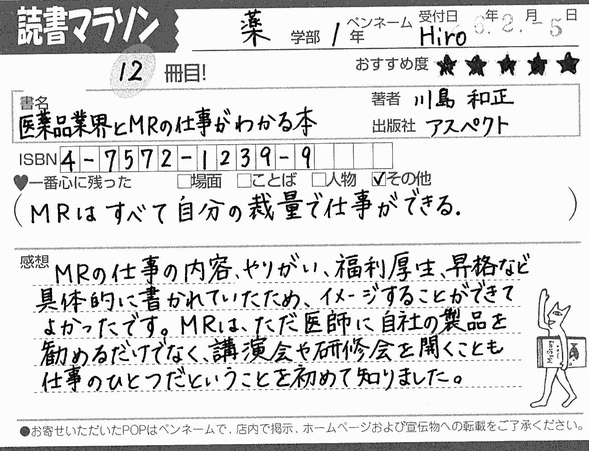 読書マラソン
薬 学部 1 年 ペンネーム Hiro 受付日 年 2. 月 -5 日
12 冊目! おすすめ度 ★★★★★
書名 医薬品業界とMRの仕事がわかる本
著者 川島 和正
出版社 アスペクト
ISBN 4-7572-1239-9
♥一番心に残った □場面 □ことば □人物 ☑その他
(MRはすべて自分の裁量で仕事ができる.)
感想 MRの仕事の内容、やりがい、福利厚生、昇格など
具体的に書かれていたため、イメージすることができて
よかったです。MRは、ただ医師に自社の製品を
勧めるだけでなく、講演会や研修会を開くことも
仕事のひとつだということを初めて知りました。
●お寄せいただいたPOPはペンネームで、店内で掲示、ホームページおよび宣伝物への転載をご了承ください。